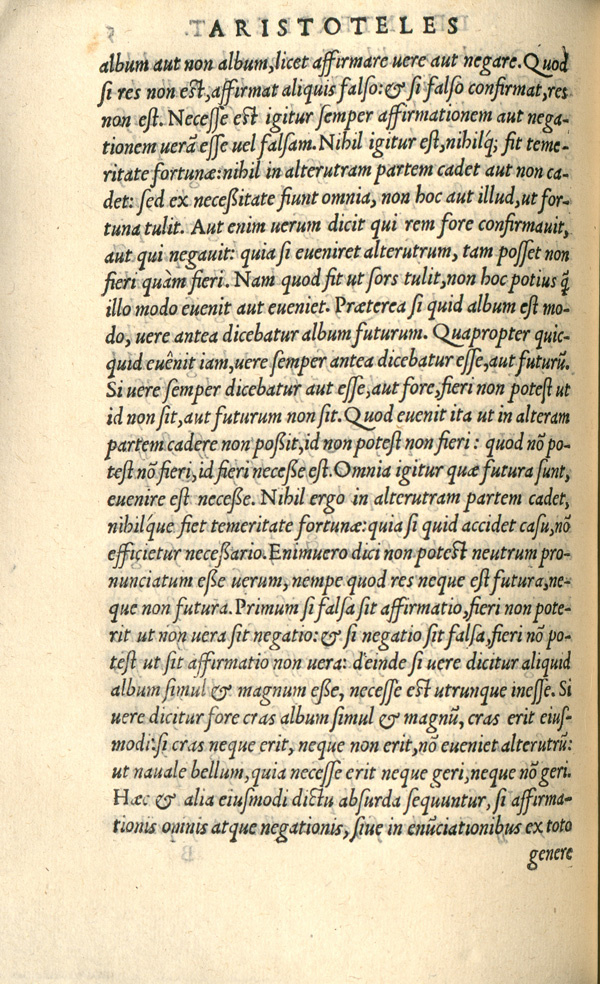 ARISTOTELES
album aut non album, licet affirmare uere aut negare. Quod
si res non est, affirmat aliquis falso: & si falso confirmat, res
non est. Necesse est igitur semper affirmationem aut nega-
tionem uerā esse uel falsam. Nihil igitur est, nihilq; fit teme-
ritate fortunæ: nihil in alterutram partem cadet aut non ca-
det: sed ex neceßitate fiunt omnia, non hoc aut illud, ut for-
tuna tulit. Aut enim uerum dicit qui rem fore confirmauit,
aut qui negauit: quia si eueniret alterutrum, tam posset non
fieri quàm fieri. Nam quod fit ut sors tulit, non hoc potius q̃
illo modo euenit aut eueniet. Præterea si quid album est mo-
do, uere antea dicebatur album futurum. Quapropter quic-
quid euênit iam, uere semper antea dicebatur esse, aut futurū.
Si uere semper dicebatur aut esse, aut fore, fieri non potest ut
id non sit, aut futurum non sit. Quod euenit ita ut in alteram
partem cadere non poßit, id non potest non fieri: quod nō po-
test nō fieri, id fieri neceße est. Omnia igitur quæ futura sunt,
euenire est neceße. Nihil ergo in alterutram partem cadet,
nihilque fiet temeritate fortunæ: quia si quid accidet casu, nō
efficietur neceßario. Enimuero dici non potest neutrum pro-
nunciatum eße uerum, nempe quod res neque est futura, ne-
que non futura. Primum si falsa sit affirmatio, fieri non pote-
rit ut non uera sit negatio: & si negatio sit falsa, fieri nō po-
test ut sit affirmatio non uera: deinde si uere dicitur aliquid
album simul & magnum eße, necesse est utrunque inesse. Si
uere dicitur fore cras album simul & magnū, cras erit eius-
modi: si cras neque erit, neque non erit, nō eueniet alterutrū:
ut nauale bellum, quia necesse erit neque geri, neque nō geri.
Hæc & alia eiusmodi dictu absurda sequuntur, si affirma-
tionis omnis atque negationis, siue in enūciationibus ex toto
genere